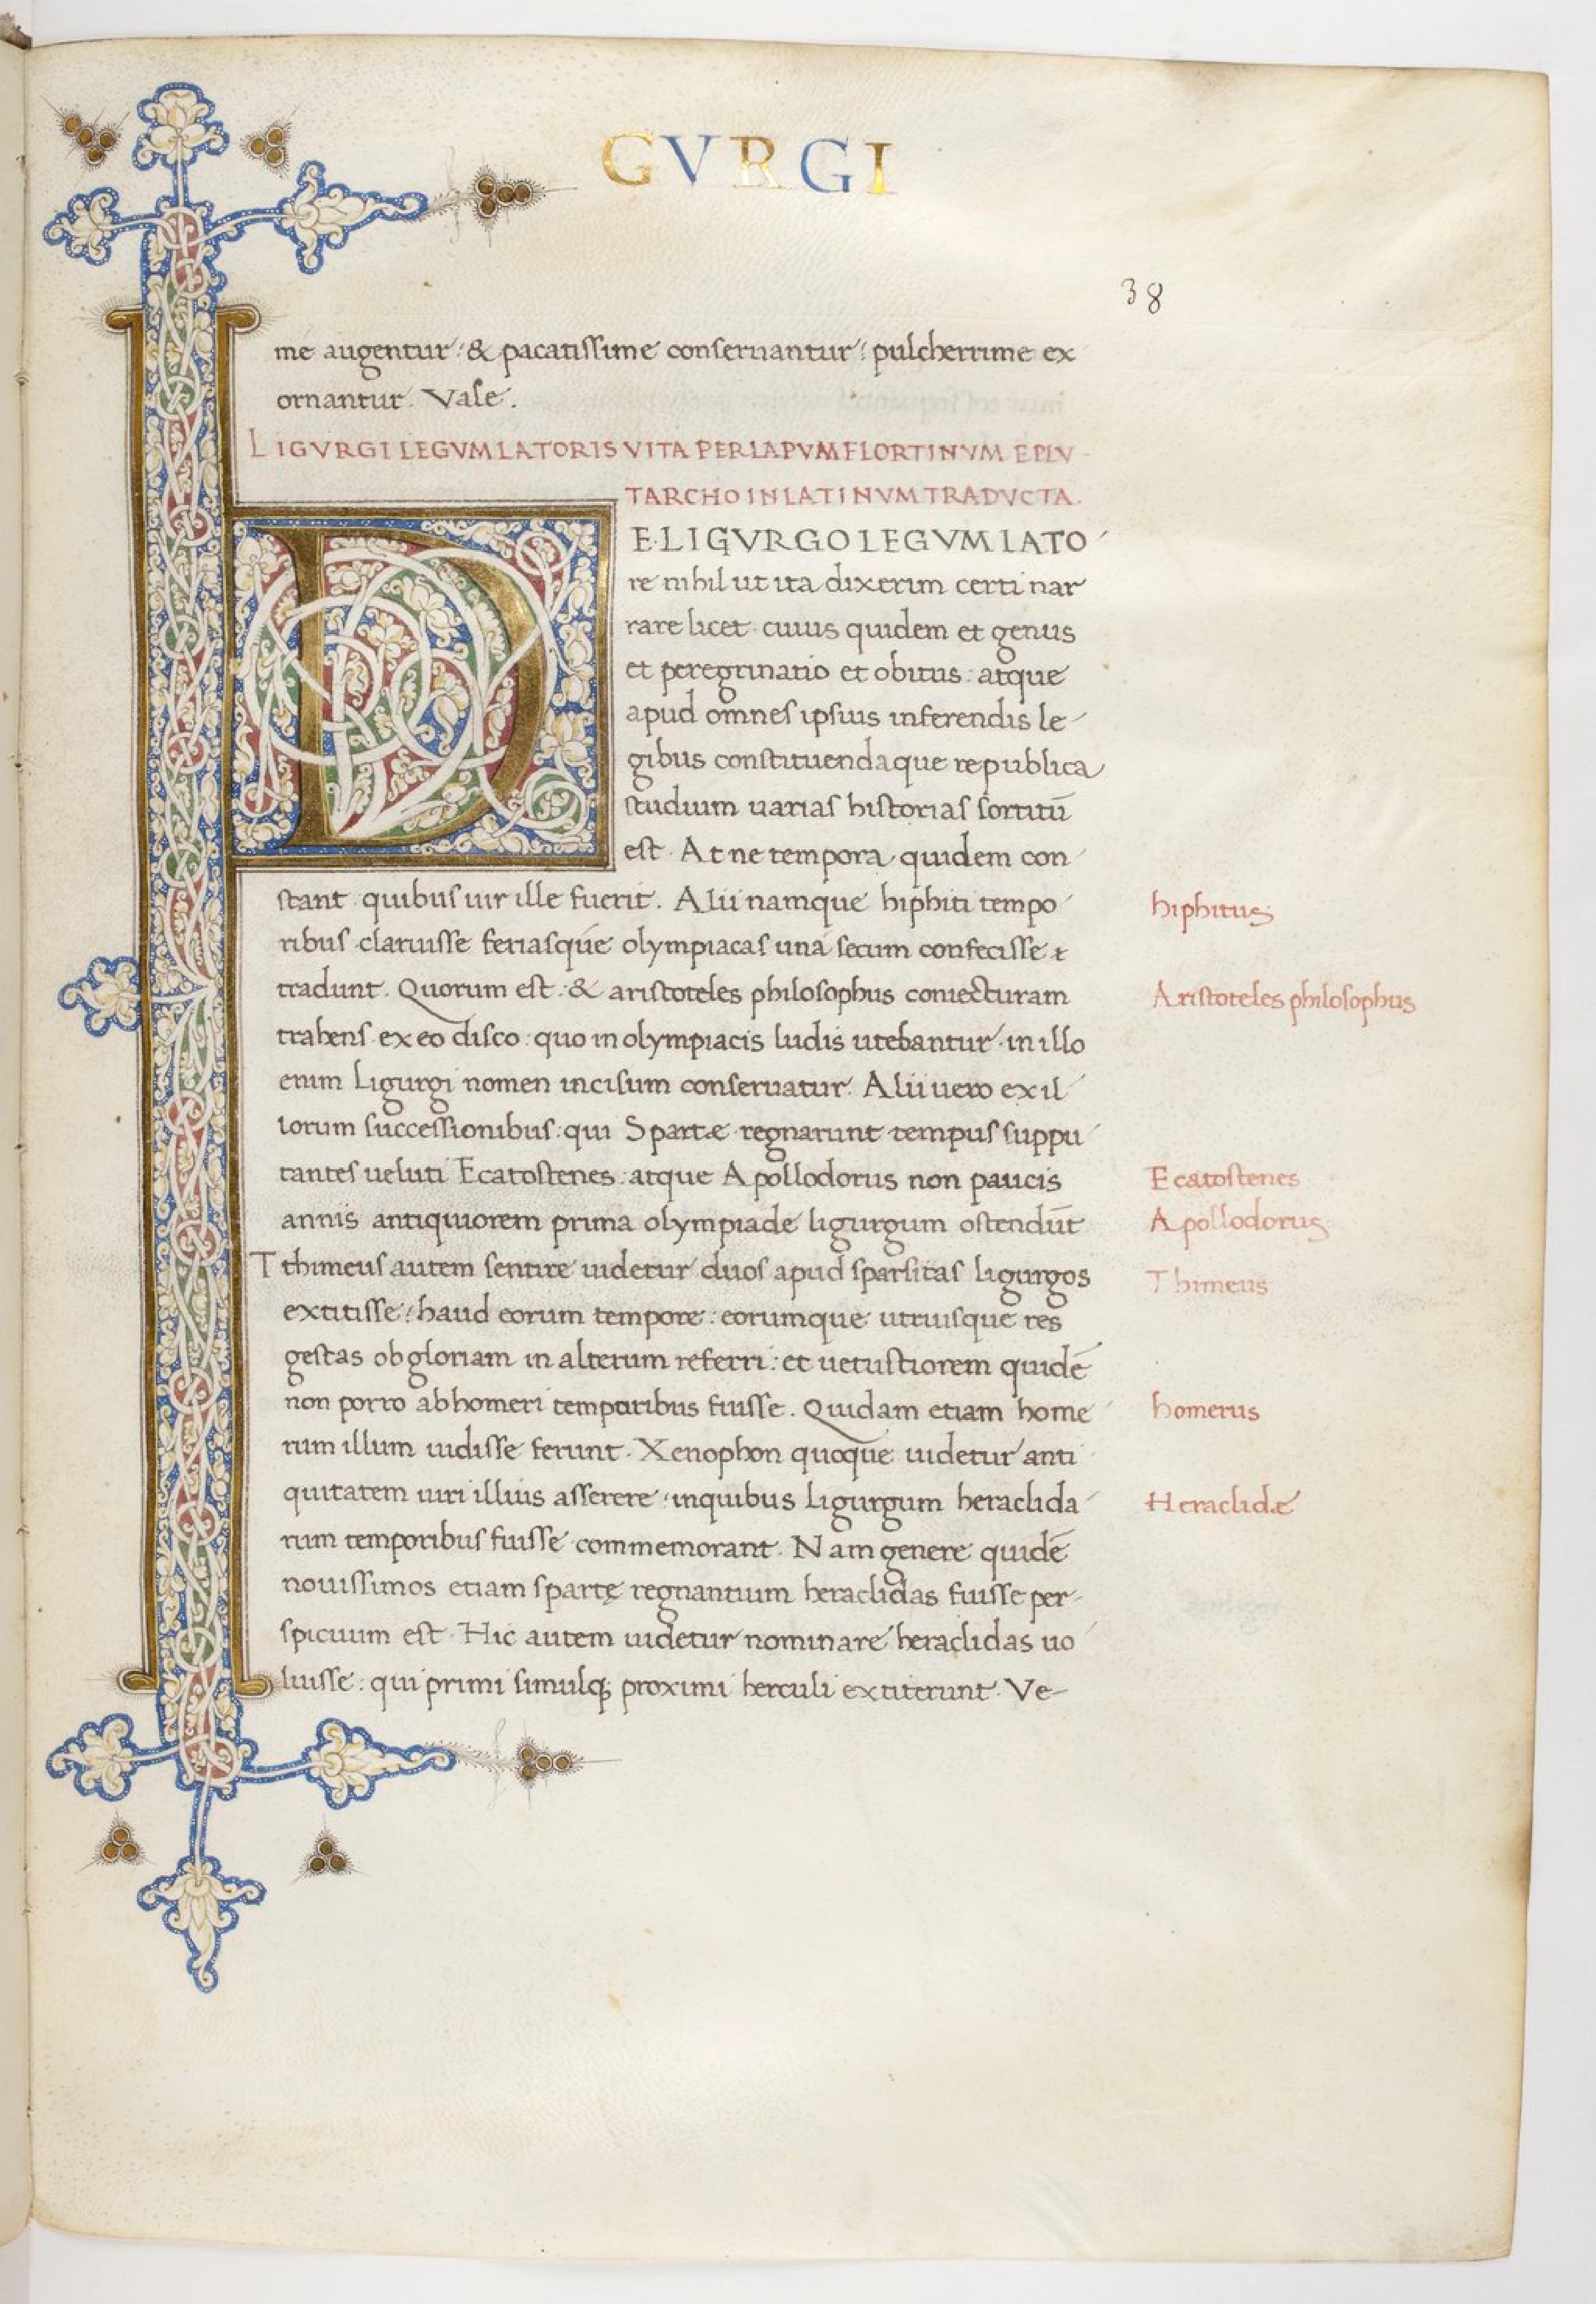 GVRGI
38
me augentur: & pacatissime conseruantur: pulcherrime ex
ornantur. Vale.
LIGVRGI LEGVM LATORIS VITA PER LAPVM FLORTINVM E PLV-
TARCHO IN LATINVM TRADVCTA.
DE LIGVRGO LEGVM LATO
re nihil ut ita dixerim certi nar
rare licet cuius quidem et genus
et peregrinatio et obitus: atque
apud omnes ipsius inferendis le
gibus constituendaque republica
studium uarias historias sortitū
est. At ne tempora quidem con
stant quibus uir ille fuerit. Alii namque hiphiti tempo
hiphitus
ribus claruisse feriasque olympiacas una secum confecisse
tradunt. Quorum est: & aristoteles philosophus coniecturam
Aristoteles philosophus
trahens ex eo disco: quo in olympiacis ludis utebantur. in illo
enim Ligurgi nomen incisum conseruatur. Alii uero ex il
lorum successionibus: qui Spartæ regnarunt tempus suppu
tantes ueluti Ecatostenes: atque Apollodorus non paucis
Ecatostenes
annis antiquiorem prima olympiade ligurgum ostendūt
Apollodorus
Tthimeus autem sentire uidetur duos apud sparsitas ligurgos
Thimeus
extitisse: haud eorum tempore: eorumque utriusque res
gestas ob gloriam in alterum referri: et uetustiorem quidē
non porro ab homeri temporibus fuisse. Quidam etiam home
homerus
rum illum uidisse ferunt. Xenophon quoque uidetur anti
quitatem uiri illius asserere: inquibus Ligurgum heraclida
Heraclidæ
rum temporibus fuisse commemorant. Nam genere quidē
nouissimos etiam spartę regnantium heraclidas fuisse per-
spicuum est. Hic autem uidetur nominare heraclidas uo
luisse: qui primi simulq; proximi herculi extiterunt. Ve-